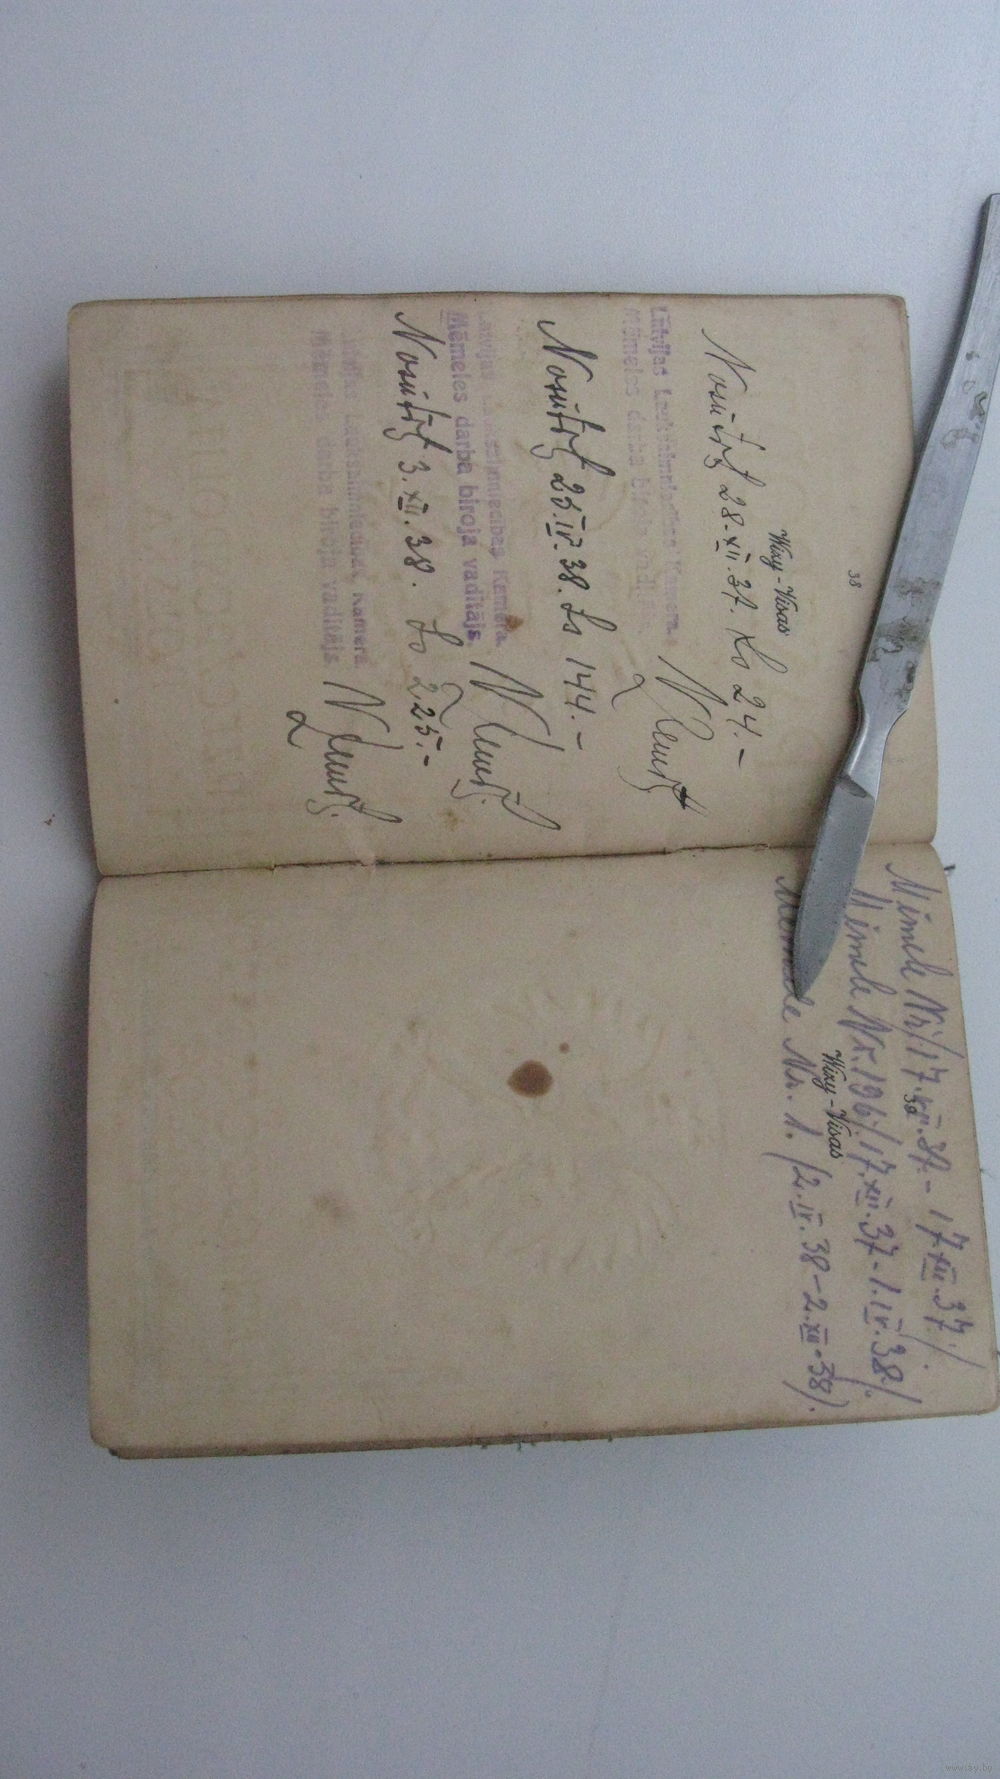 38
Wizy - Visas
Nosūtīt 28.XII.37. Ls 24.-
Latvijas Lauksaimniecības Kamera
Mēmeles darba biroja vadītājs
Nosūtīt 25.IV.38. Ls 144.-
Latvijas Lauksaimniecības Kamera.
Mēmeles darba biroja vadītājs.
Nosūtīt 3.XII.38. Ls 225.-
Latvijas Lauksaimniecības Kamera
Mēmeles darba biroja vadītājs
39
Mēmele Nr. 17. 37. - 17.XII.37/.
Mēmele Nr. 196/17.XII.37-1.IV.38/.
Wizy - Visas
Mēmele Nr. 1. (2.IV.38-2.XII.38).
www.ay.by